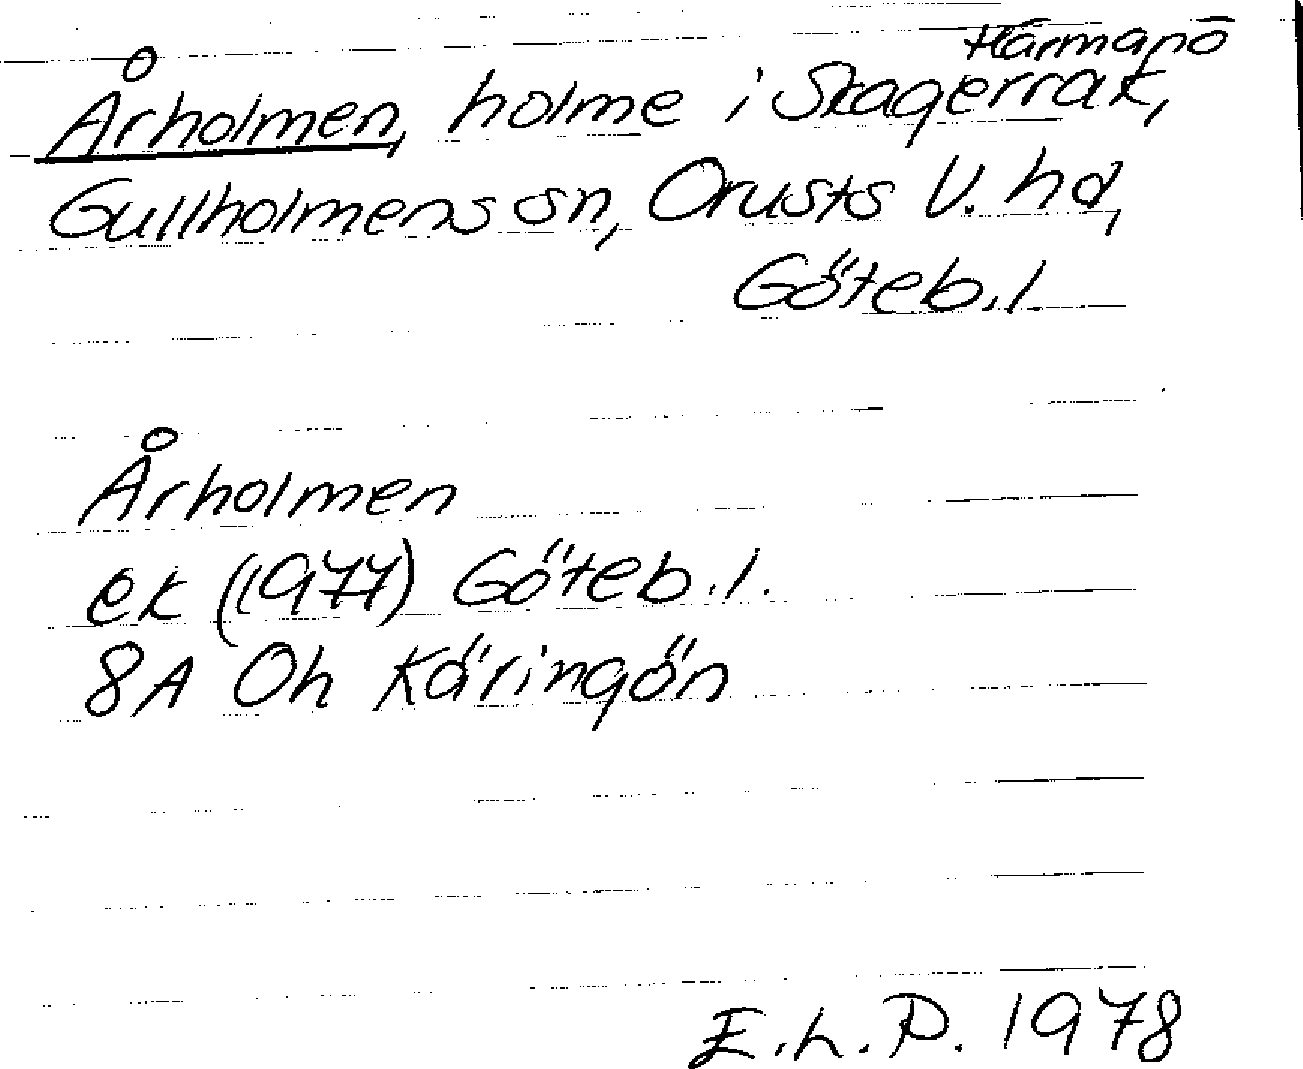 Härmanö
Årholmen, holme i Skagerrak,
Gullholmens sn, Orusts V. hd,
Göteb.l.
Årholmen
ek (1977) Göteb.l.
8A Oh Käringön
E.L.P. 1978